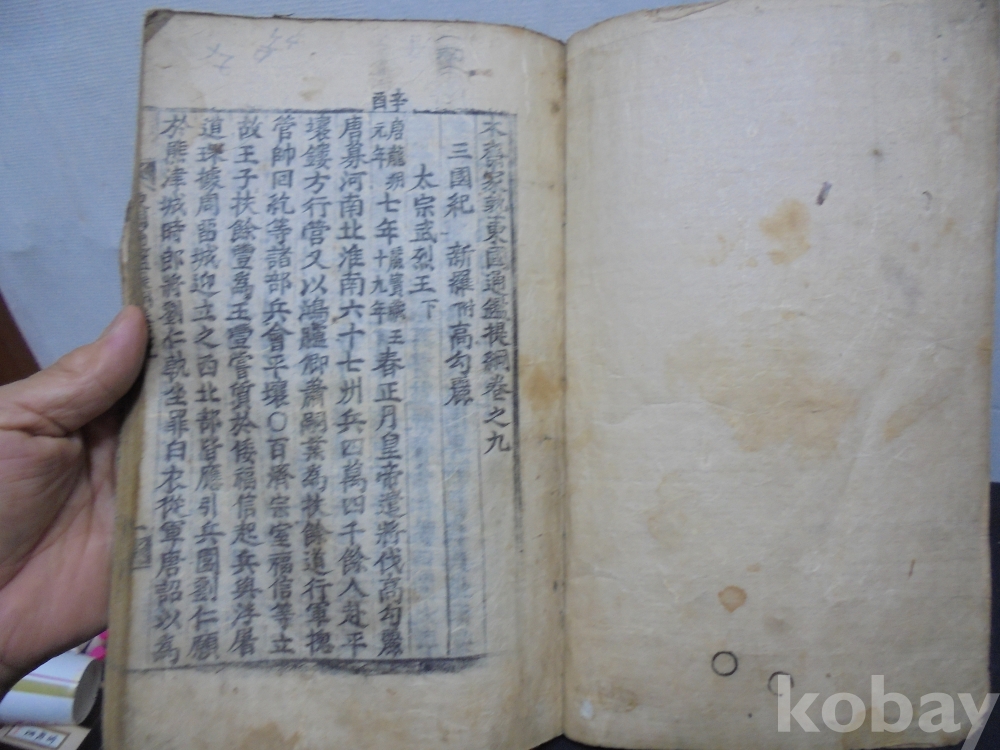 木齋家塾東國通鑑提綱卷之九
三國紀 新羅附高句麗
太宗武烈王下
辛酉
唐龍朔元年七年麗寶藏王十九年春正月皇帝遣將伐高句麗
唐募河南北淮南六十七州兵四萬四千餘人赴平
壤鏤方行營又以鴻臚卿蕭嗣業為扶餘道行軍摠
管帥回紇等諸部兵會平壤○百濟宗室福信等立
故王子扶餘豐為王豐嘗質於倭福信起兵與浮屠
道琛據周留城迎立之西北部皆應引兵圍劉仁願
於熊津城時郎將劉仁軌坐罪白衣從軍唐詔以為
kobay